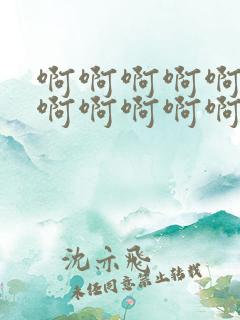 啊啊啊啊啊
啊啊啊啊啊
沈示飛
未经同意禁止转载